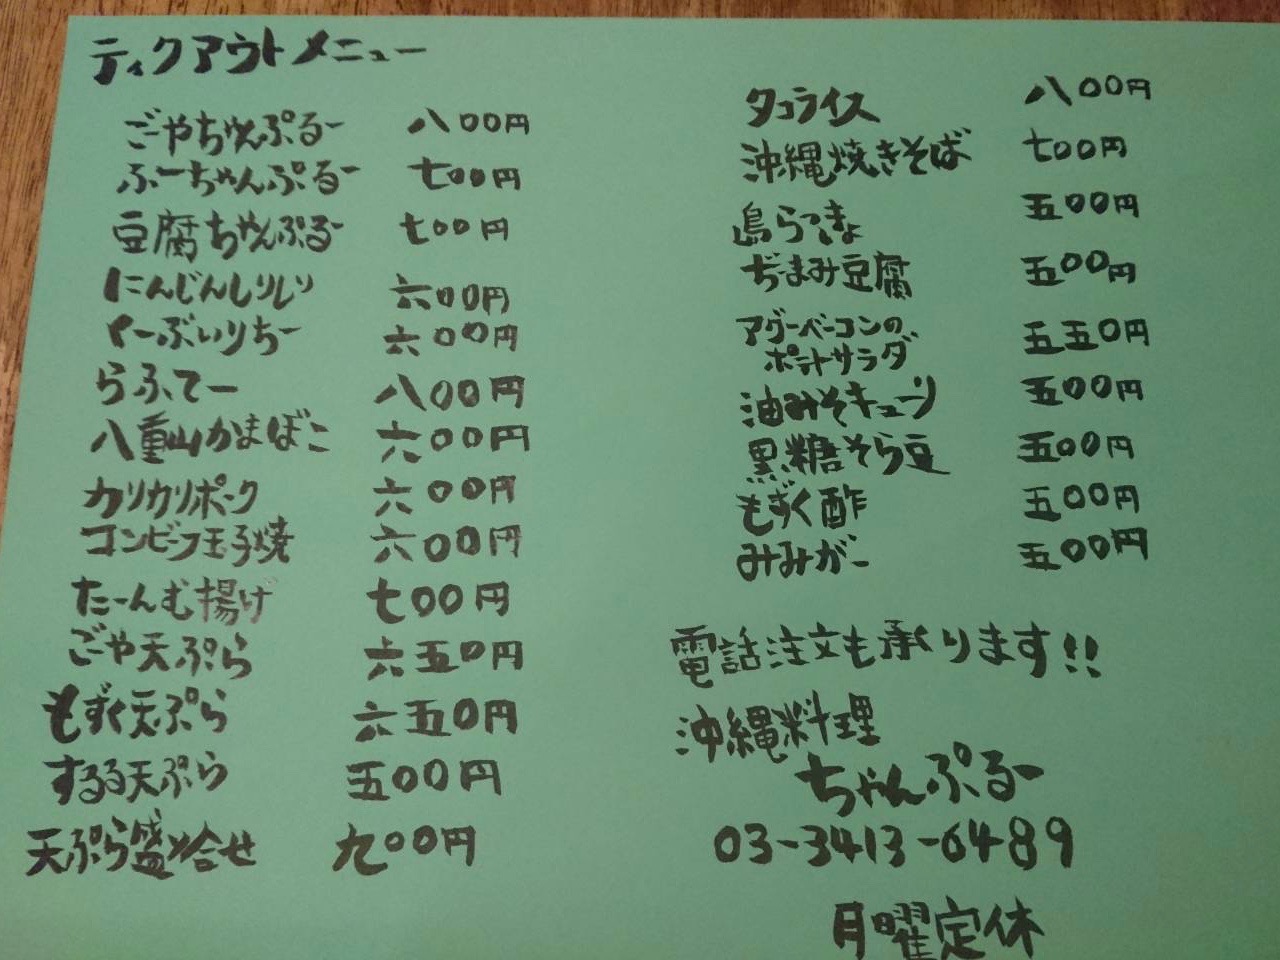 ティクアウトメニュー
ごやちゃんぷるー 八00円
ふーちゃんぷるー 七00円
豆腐ちゃんぷるー 七00円
にんじんしりしり 六00円
くーぶいりちー 六00円
らふてー 八00円
八重山かまぼこ 六00円
カリカリポーク 六00円
コンビーフ玉子焼 六00円
たーんむ揚げ 七00円
ごや天ぷら 六五0円
もずく天ぷら 六五0円
するる天ぷら 五00円
天ぷら盛り合せ 九00円
タコライス 八00円
沖縄焼きそば 七00円
島らっきょ 五00円
ぢまみ豆腐 五00円
アグーベーコンの 五五0円
ポテトサラダ
油みそキューリ 五00円
黒糖そら豆 五00円
もずく酢 五00円
みみがー 五00円
電話注文も承ります!!
沖縄料理
ちゃんぷるー
03-3413-6489
月曜定休